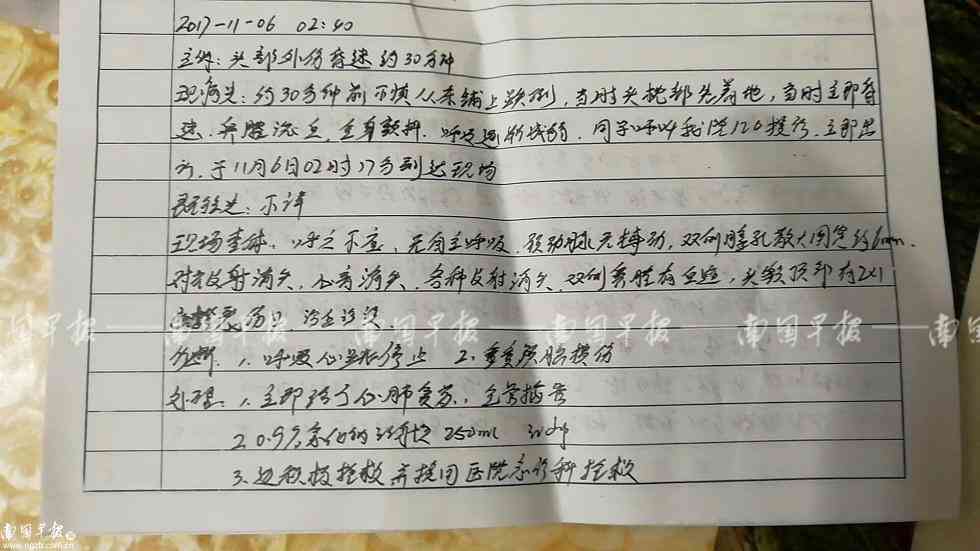 2017-11-06 02:40
主诉：头部外伤昏迷约30分钟
现病史：约30分钟前不慎从床铺上跌倒，当时头枕部先着地，当时立即昏
迷，鼻腔流血，全身颤抖，呼吸逐渐减弱，同学呼叫我院120接诊，立即出
诊，于11月6日02时17分到达现场
既往史：不详
现场查体：呼之不应，无自主呼吸，颈动脉无搏动，双侧瞳孔散大固定约6mm，
对光反射消失，心音消失，各种反射消失，双侧鼻腔有血迹，头颅顶部有2×1
伤口
南国早报 南国早报 南国早报
诊断：1、呼吸心跳停止 2、重度颅脑损伤
处理：1、立即给予心肺复苏，
2、0.9%氯化钠注射液 250ml ivdrip
3、边积极抢救并接回医院急诊科抢救
南国早报
www.ngzb.com.cn